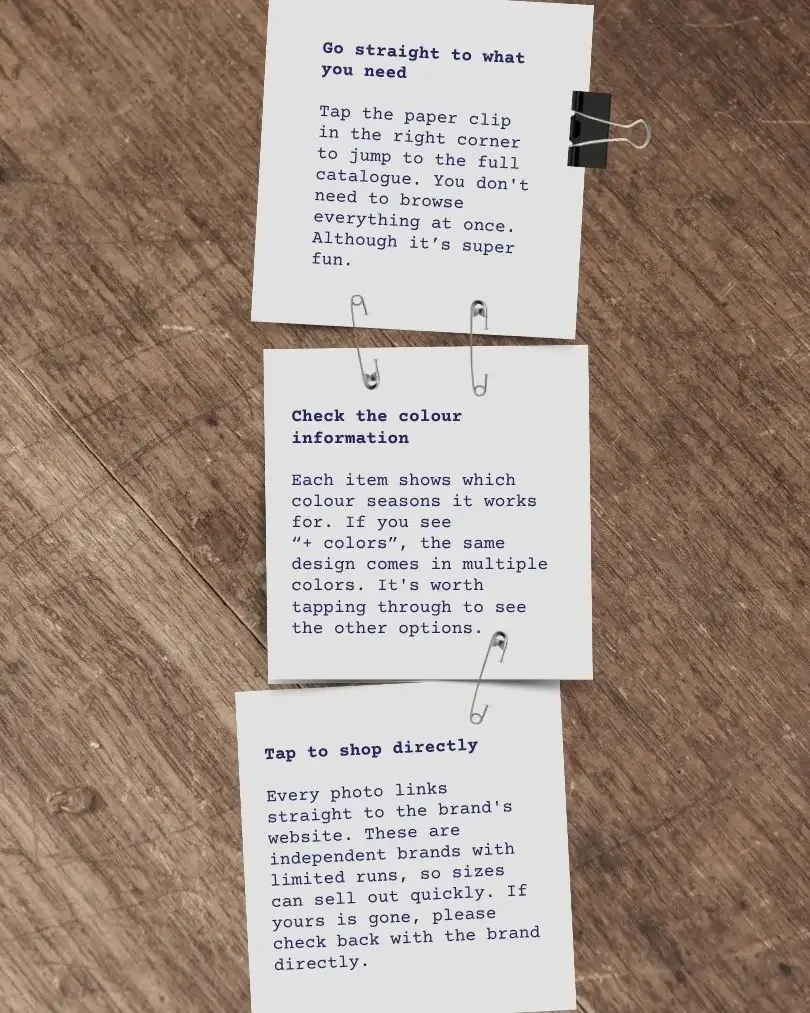 Go straight to what
you need
Tap the paper clip
in the right corner
to jump to the full
catalogue. You don't
need to browse
everything at once.
Although it’s super
fun.
Check the colour
information
Each item shows which
colour seasons it works
for. If you see
“+ colors”, the same
design comes in multiple
colors. It's worth
tapping through to see
the other options.
Tap to shop directly
Every photo links
straight to the brand's
website. These are
independent brands with
limited runs, so sizes
can sell out quickly. If
yours is gone, please
check back with the brand
directly.